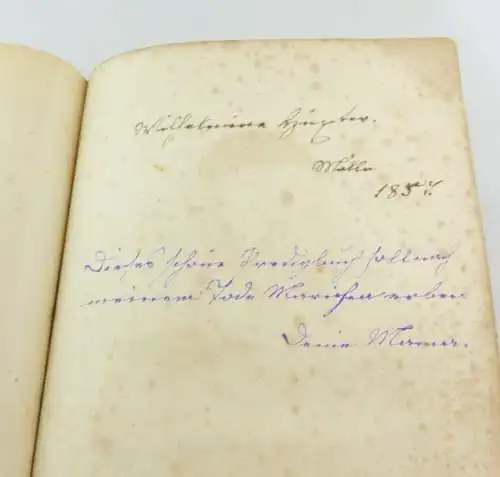 Wilhelmine
Mölln
185
Dieses schöne Predigtbuch soll nach
meinem Tode Mariechen erben
Deine Mama.